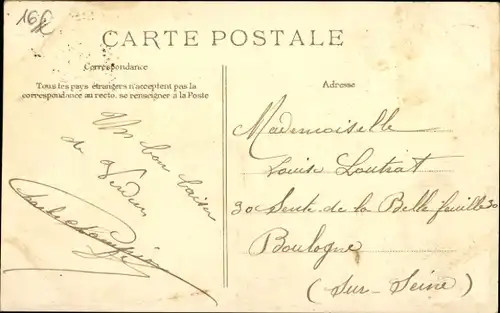 16f
CARTE POSTALE
Correspondance
Tous les pays étrangers n'acceptent pas la
correspondance au recto, se renseigner à la Poste
Adresse
Un bon baiser
de
Mademoiselle
Louise Loutrat
30 Sente de la Belle feuille 30
Boulogne
(Sur-Seine)